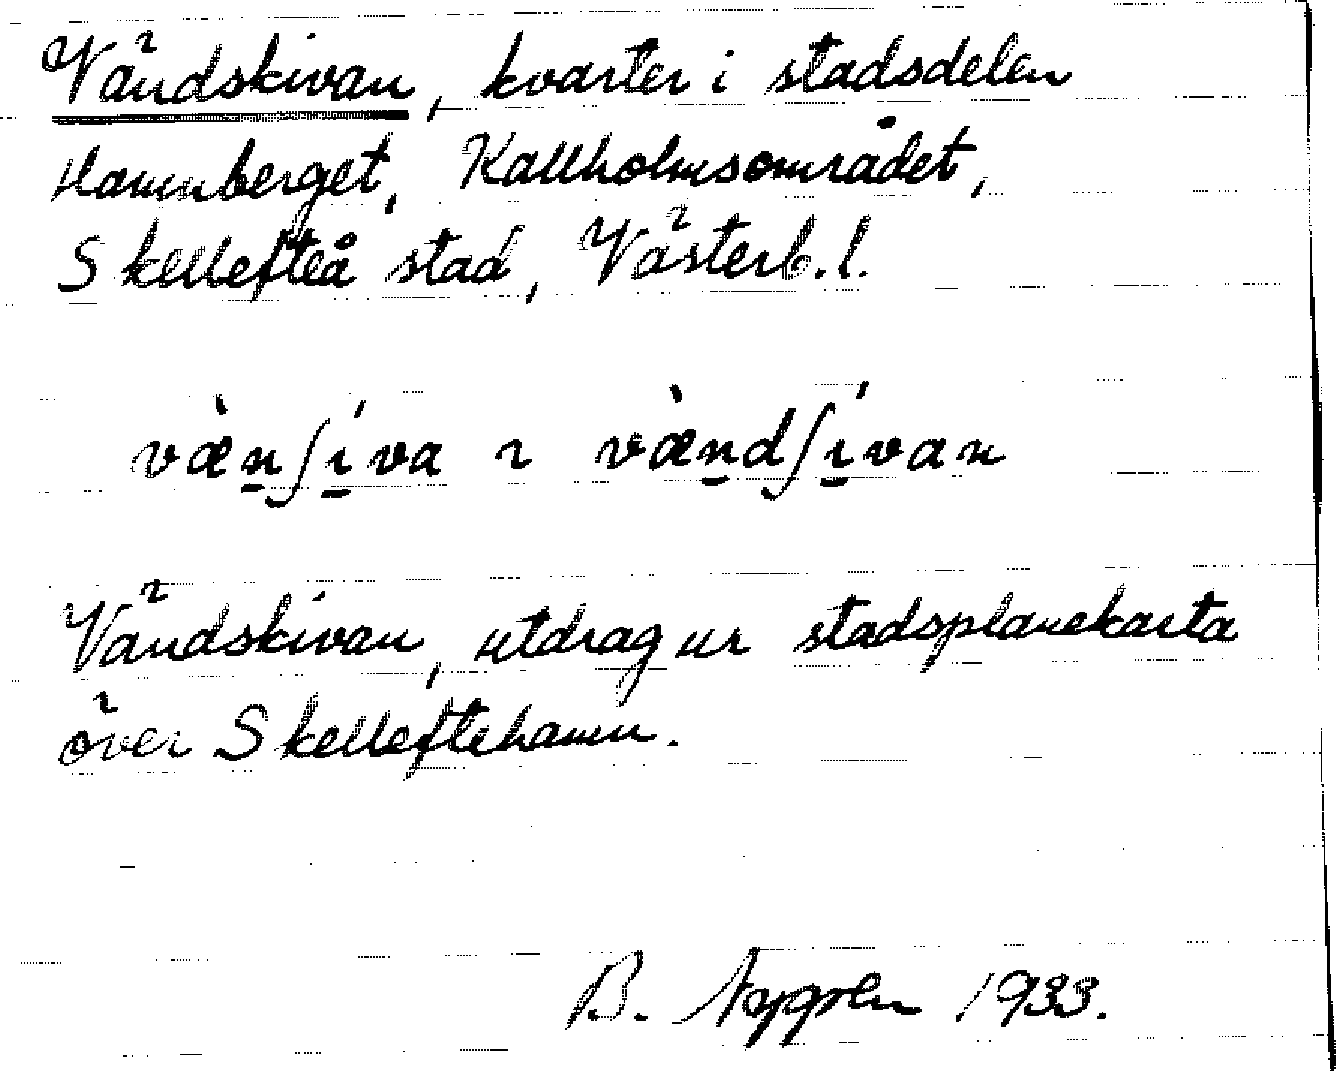 Vändskivan, kvarter i stadsdelen
Hamnberget, Kallholmsområdet,
Skellefteå stad, Västerb. l.
væ̀nʃíva ~ væ̀ndʃívan
Vändskivan, utdrag ur stadsplanekarta
över Skelleftehamn.
B. Nygren 1933.